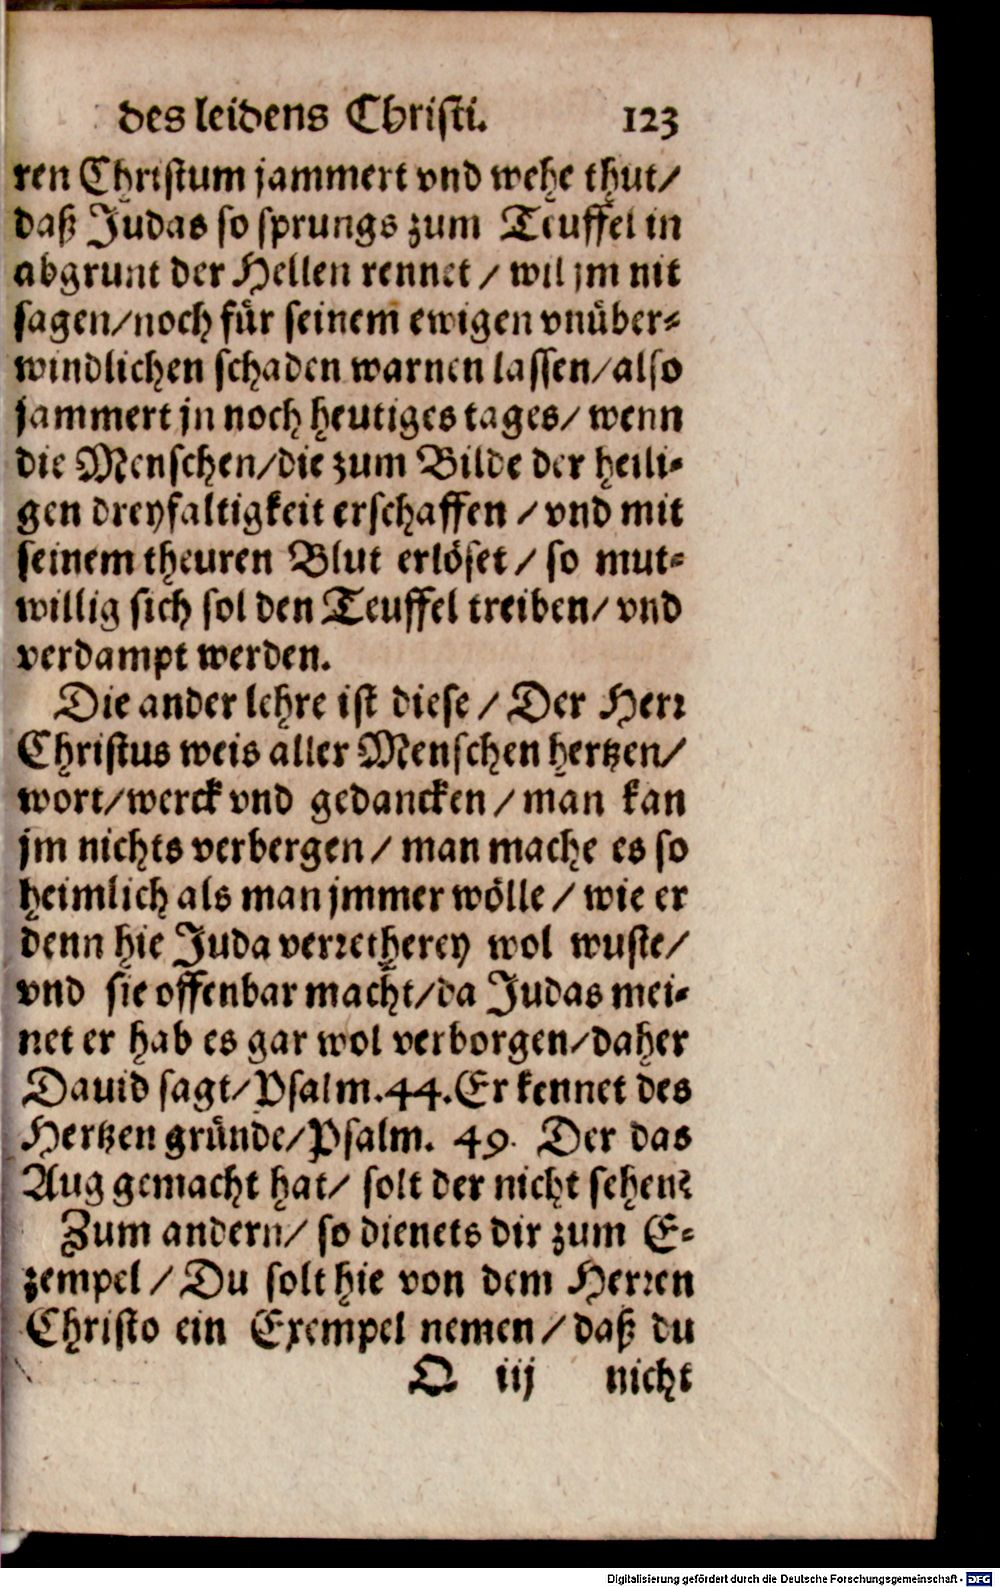 des leidens Christi. 123
ren Christum jammert vnd wehe thut/
daß Judas so sprungs zum Teuffel in
abgrunt der Hellen rennet / wil jm nit
sagen/noch für seinem ewigen vnüber-
windlichen schaden warnen lassen/also
jammert jn noch heutiges tages/ wenn
die Menschen/die zum Bilde der heili-
gen dreyfaltigkeit erschaffen / vnd mit
seinem theuren Blut erlöset / so mut-
willig sich sol den Teuffel treiben/ vnd
verdampt werden.
Die ander lehre ist diese / Der Herr
Christus weis aller Menschen hertzen/
wort/werck vnd gedancken / man kan
jm nichts verbergen / man mache es so
heimlich als man jmmer wölle / wie er
denn hie Juda verretherey wol wuste/
vnd sie offenbar macht/da Judas mei-
net er hab es gar wol verborgen/daher
Dauid sagt/Psalm.44.Er kennet des
Hertzen gründe/Psalm. 49. Der das
Aug gemacht hat/ solt der nicht sehen?
Zum andern/ so dienets dir zum E-
zempel / Du solt hie von dem Herren
Christo ein Exempel nemen / daß du
Q iij nicht
Digitalisierung gefördert durch die Deutsche Forschungsgemeinschaft - DFG